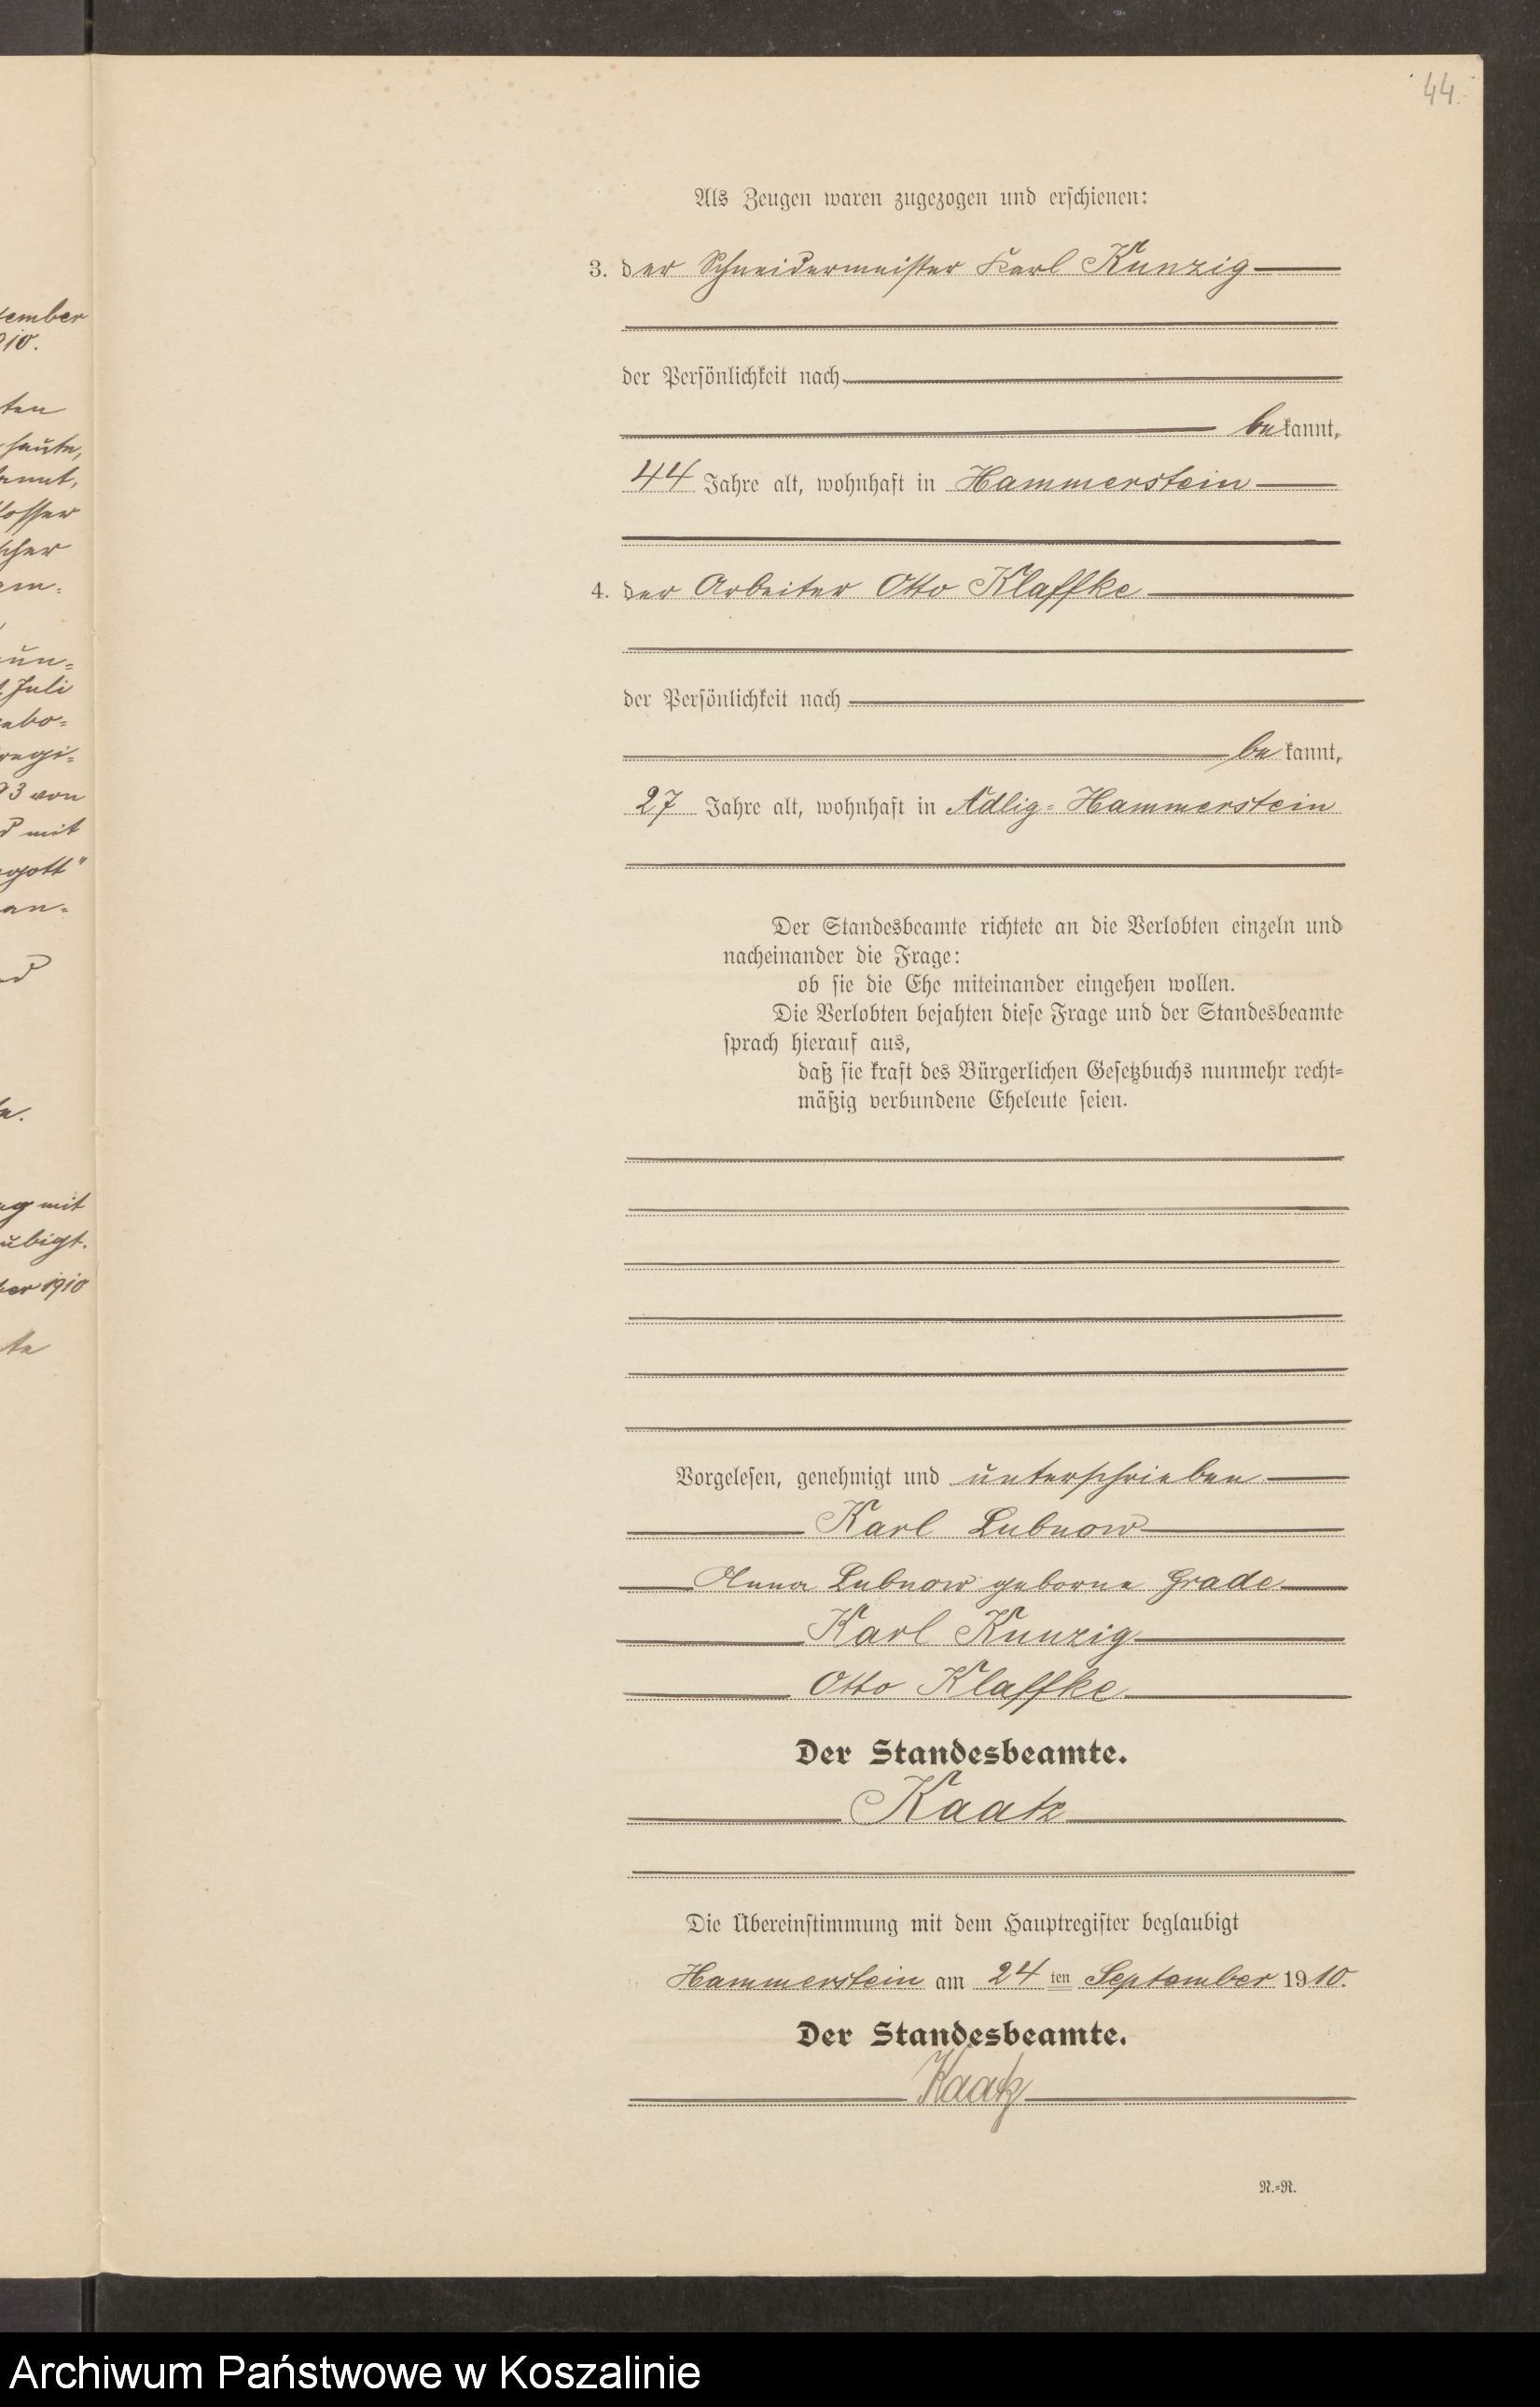 44.
Als Zeugen waren zugezogen und erschienen:
3. der Schneidermeister Karl Kunzig
der Persönlichkeit nach
bekannt,
44 Jahre alt, wohnhaft in Hammerstein
4. der Arbeiter Otto Klaffke
der Persönlichkeit nach
bekannt,
27 Jahre alt, wohnhaft in Adlig-Hammerstein
Der Standesbeamte richtete an die Verlobten einzeln und
nacheinander die Frage:
ob sie die Ehe miteinander eingehen wollen.
Die Verlobten bejahten diese Frage und der Standesbeamte
sprach hierauf aus,
daß sie kraft des Bürgerlichen Gesetzbuchs nunmehr recht-
mäßig verbundene Eheleute seien.
Vorgelesen, genehmigt und unterschrieben
Karl Lubnow
Anna Lubnow geborne Grade
Karl Kunzig
Otto Klaffke
Der Standesbeamte.
Kaatz
Die Übereinstimmung mit dem Hauptregister beglaubigt
Hammerstein am 24ten September 1910.
Der Standesbeamte.
Kaatz
N.-R.
Archiwum Państwowe w Koszalinie